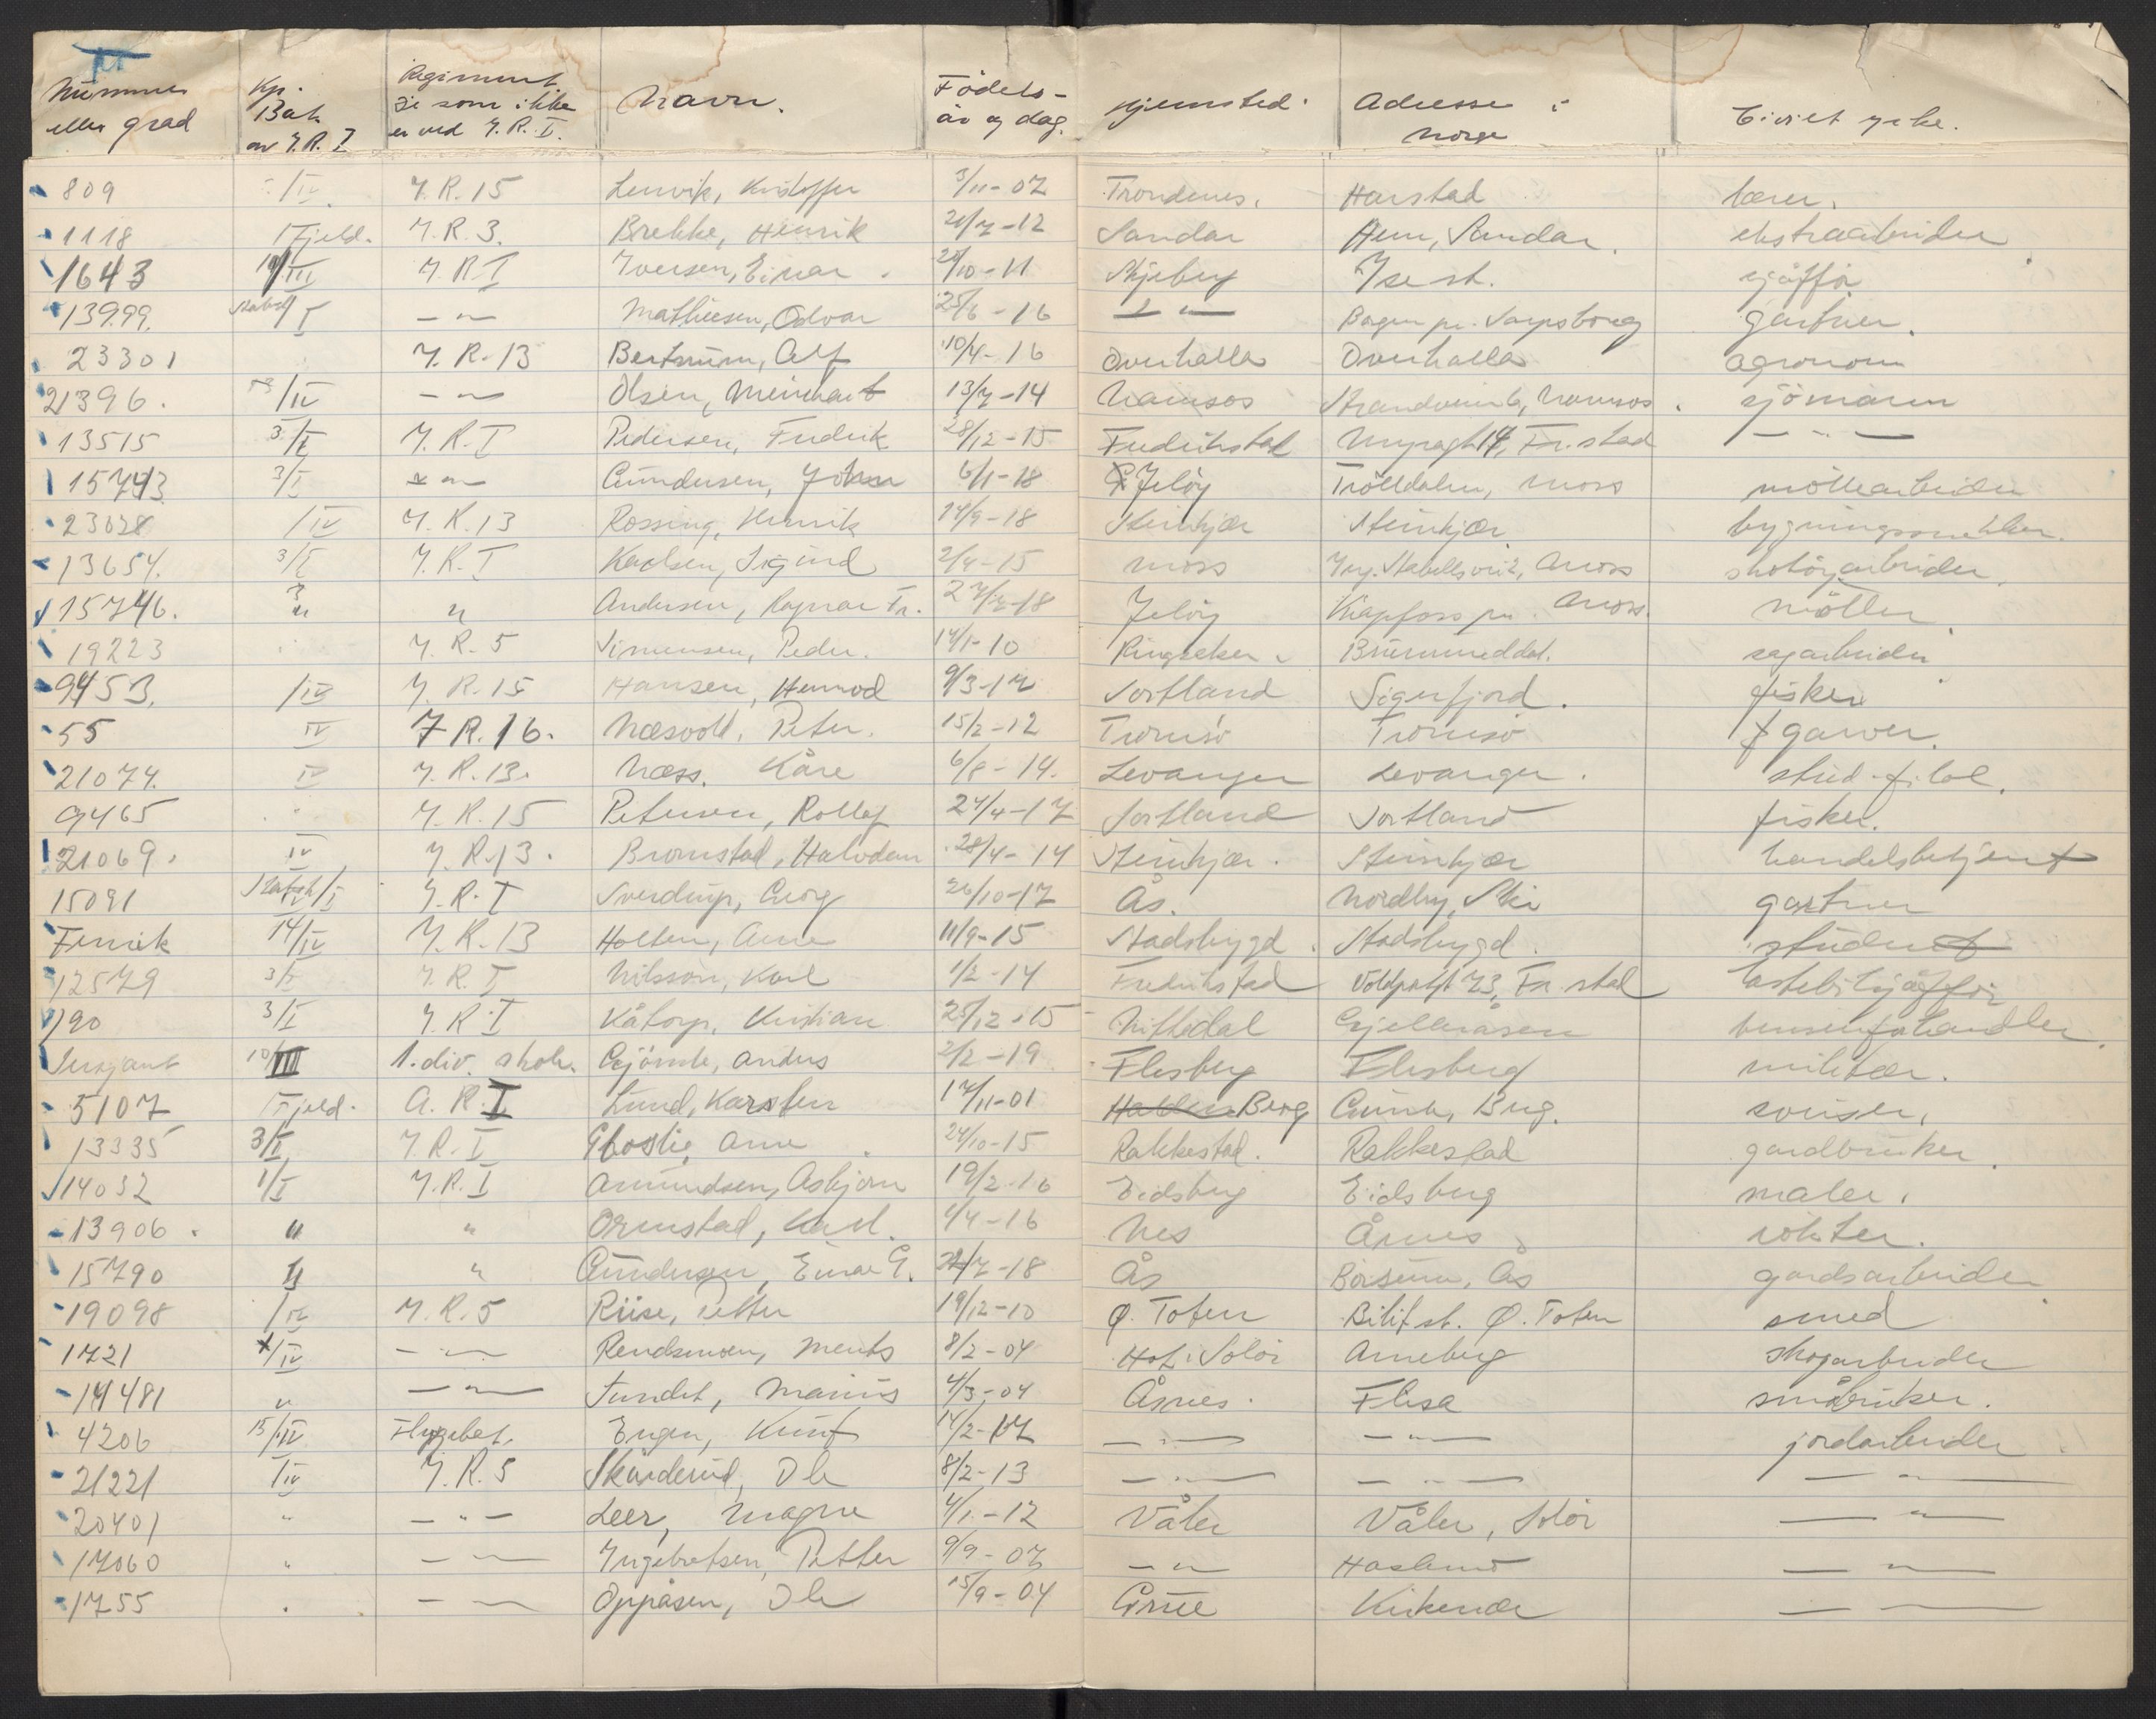 Nummer eller grad | Kp. Bat. av I.R. I | Regiment de som ikke er ved I.R. I. | Navn. | Födels- år og dag. | Hjemsted. | Adresse i Norge | Civilt yrke.
809 | /IV. | I.R. 15 | Lenvik, Kristoffer | 3/11-07 | Trondenes. | Harstad | lærer.
1118 | Fjeld. | I.R. 3. | Brekke, Henrik | 21/7-12 | Sandar | Hem, Sandar. | ekstraarbeider
1643 | /III | I.R I | Iversen, Einar. | /10-11 | Skjeberg | Ise st. | sjåffør
13999. | /I | — " — | Mathiesen, Odvar | 25/6-16 | — " — | Borgen pr. Sarpsborg | gartner.
23301 | I.R. 13 | Bertnum, Alf | 10/4-16 | Overhalla | Overhalla | agronom
21396. | /IV | — " — | Olsen, Meinhart | 13/7-14 | Namsos | Strandveien 6, Namsos. | sjömann
13515 | 3/I | I.R. I | Pedersen, Fredrik | 28/12-15 | Fredrikstad | Nyragt 14, Fr.stad | — " —
15743 | 3/I | — " — | Gundersen, John | 6/1-18 | Jelöy | Trolldalen, Moss | möllearbeider
23028 | /IV | I.R. 13 | Rossing, Henrik | 14/9-18 | Steinkjær | Steinkjær | bygningssnekker.
13654. | 3/I | I.R. I | Karlsen, Sigurd | 2/4-15 | Moss | Stabellsvei 2, Moss | skotöyarbeider.
15746. | " | " | Andersen, Ragnar Fr. | 27/7-18 | Jelöy | Kapfoss pr. Moss. | möller
19223 | I.R. 5 | Simensen, Peder. | 14/1-10 | Ringsaker. | Brummeddal. | sagarbeider
9453. | /IV | I.R. 15 | Hansen, Hermod | 9/3-17 | Sortland | Sigerfjord. | fisker
55 | IV | I R. 16. | Næsvold, Peter. | 15/2-12 | Tromsö | Tromsö | garver.
21074. | IV | I.R. 13. | Næss. Kåre | 6/8-14. | Levanger | Levanger. | stud. filol.
9465 | I.R. 15 | Petersen, Rollef | 27/4-17 | Sortland | Sortland | fisker.
21069. | IV | I.R. 13. | Bromstad, Halvdan | 28/4-14 | Steinkjær. | Steinkjær | handelsbetjent
15091 | Stabsk/I | I.R. I | Sverdrup, Georg | 26/10-17 | Ås. | Nordby, Ski | gartner
Fenrik | 14/IV | I.R. 13 | Holten, Arne | 11/9-15 | Stadsbygd. | Stadsbygd. | student
12579 | 3/I | I.R. I | Nilsson, Karl | 1/2-14 | Fredrikstad | Voldportgt 73, Fr.stad | lastebilsjåffør
190 | 3/I | I.R I | Kåtorp, Kristian | 25/12-15 | Nittedal | Gjelleråsen | bensinforhandler.
Sersjant | 10/III | 1. div. skole. | Gjörnde, Anders | 2/2-19 | Flesberg | Flesberg | militær.
5107 | Fjeld. | A.R. I | Lund, Karsten | 17/11-01 | Halden Berg | Gunb, Berg. | sveiser.
13335 | 3/I | I.R. I | Arne | 24/10-15 | Rakkestad. | Rakkestad | gardbruker.
14032 | 1/I | I.R. I | Amundsen, Asbjörn | 19/2-16 | Eidsberg | Eidsberg | maler.
13906. | " | " | Ormstad, Karl. | 1/4-16 | Nes | Årnes | rökter.
15790 | " | " | Gundersen, Einar G. | /7-18 | Ås | Börsum, Ås | gardsarbeider
19098 | /IV | I.R. 5 | Riise, Petter | 19/12-10 | Ø. Toten | Bilit st. Ø. Toten | smed
1721 | /IV | — " — | Rendsmoen, Ments | 8/2-04 | Hof i Solör | Arneberg | skogarbeider
14481 | " | — " — | Sundet, Marius | 4/3-04 | Åsnes. | Flisa | småbruker.
4206 | 15/IV | Flygebat. | Engen, Knut | 14/2-17 | — " — | — " — | jordarbeider.
21221 | /IV | I.R. 5 | Skårderud, Ole | 8/2-13 | — " — | — " — | — " —
20401 | " | — " — | Leer, Magne | 4/1-12 | Våler | Våler, Solör | — " —
17060 | " | — " — | Ingebretsen, Petter | 9/9-07 | — " — | Haslemo | — " —
1755 | " | — " — | Oppåsen, Ole | 15/9-04 | Grue | Kirkenær | — " —